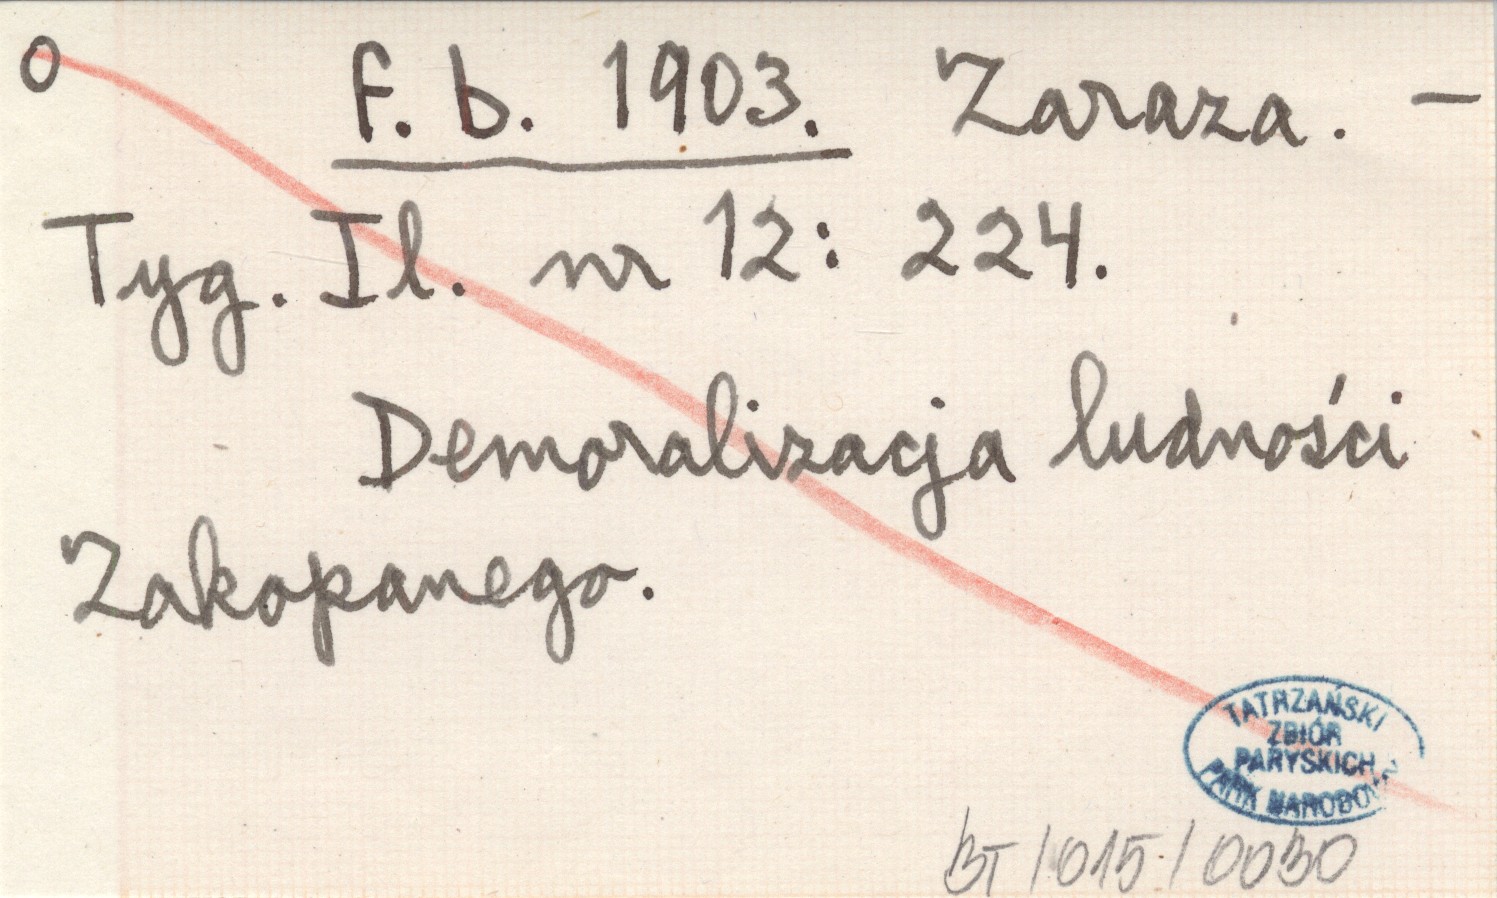 O
F. b. 1903. Zaraza. —
Tyg. Il. nr 12: 224.
Demoralizacja ludności
Zakopanego.
TATRZAŃSKI
ZBIÓR
PARYSKICH
PARK NARODOWY
BT/015/0030